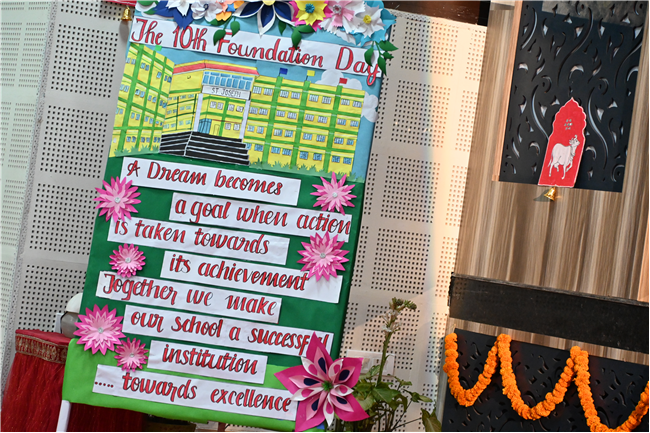 The 10th Foundation Day
ST JOSEPH
A Dream becomes
a goal when action
is taken towards
its achievement
Together we make
our school a successful
institution
..... towards excellence